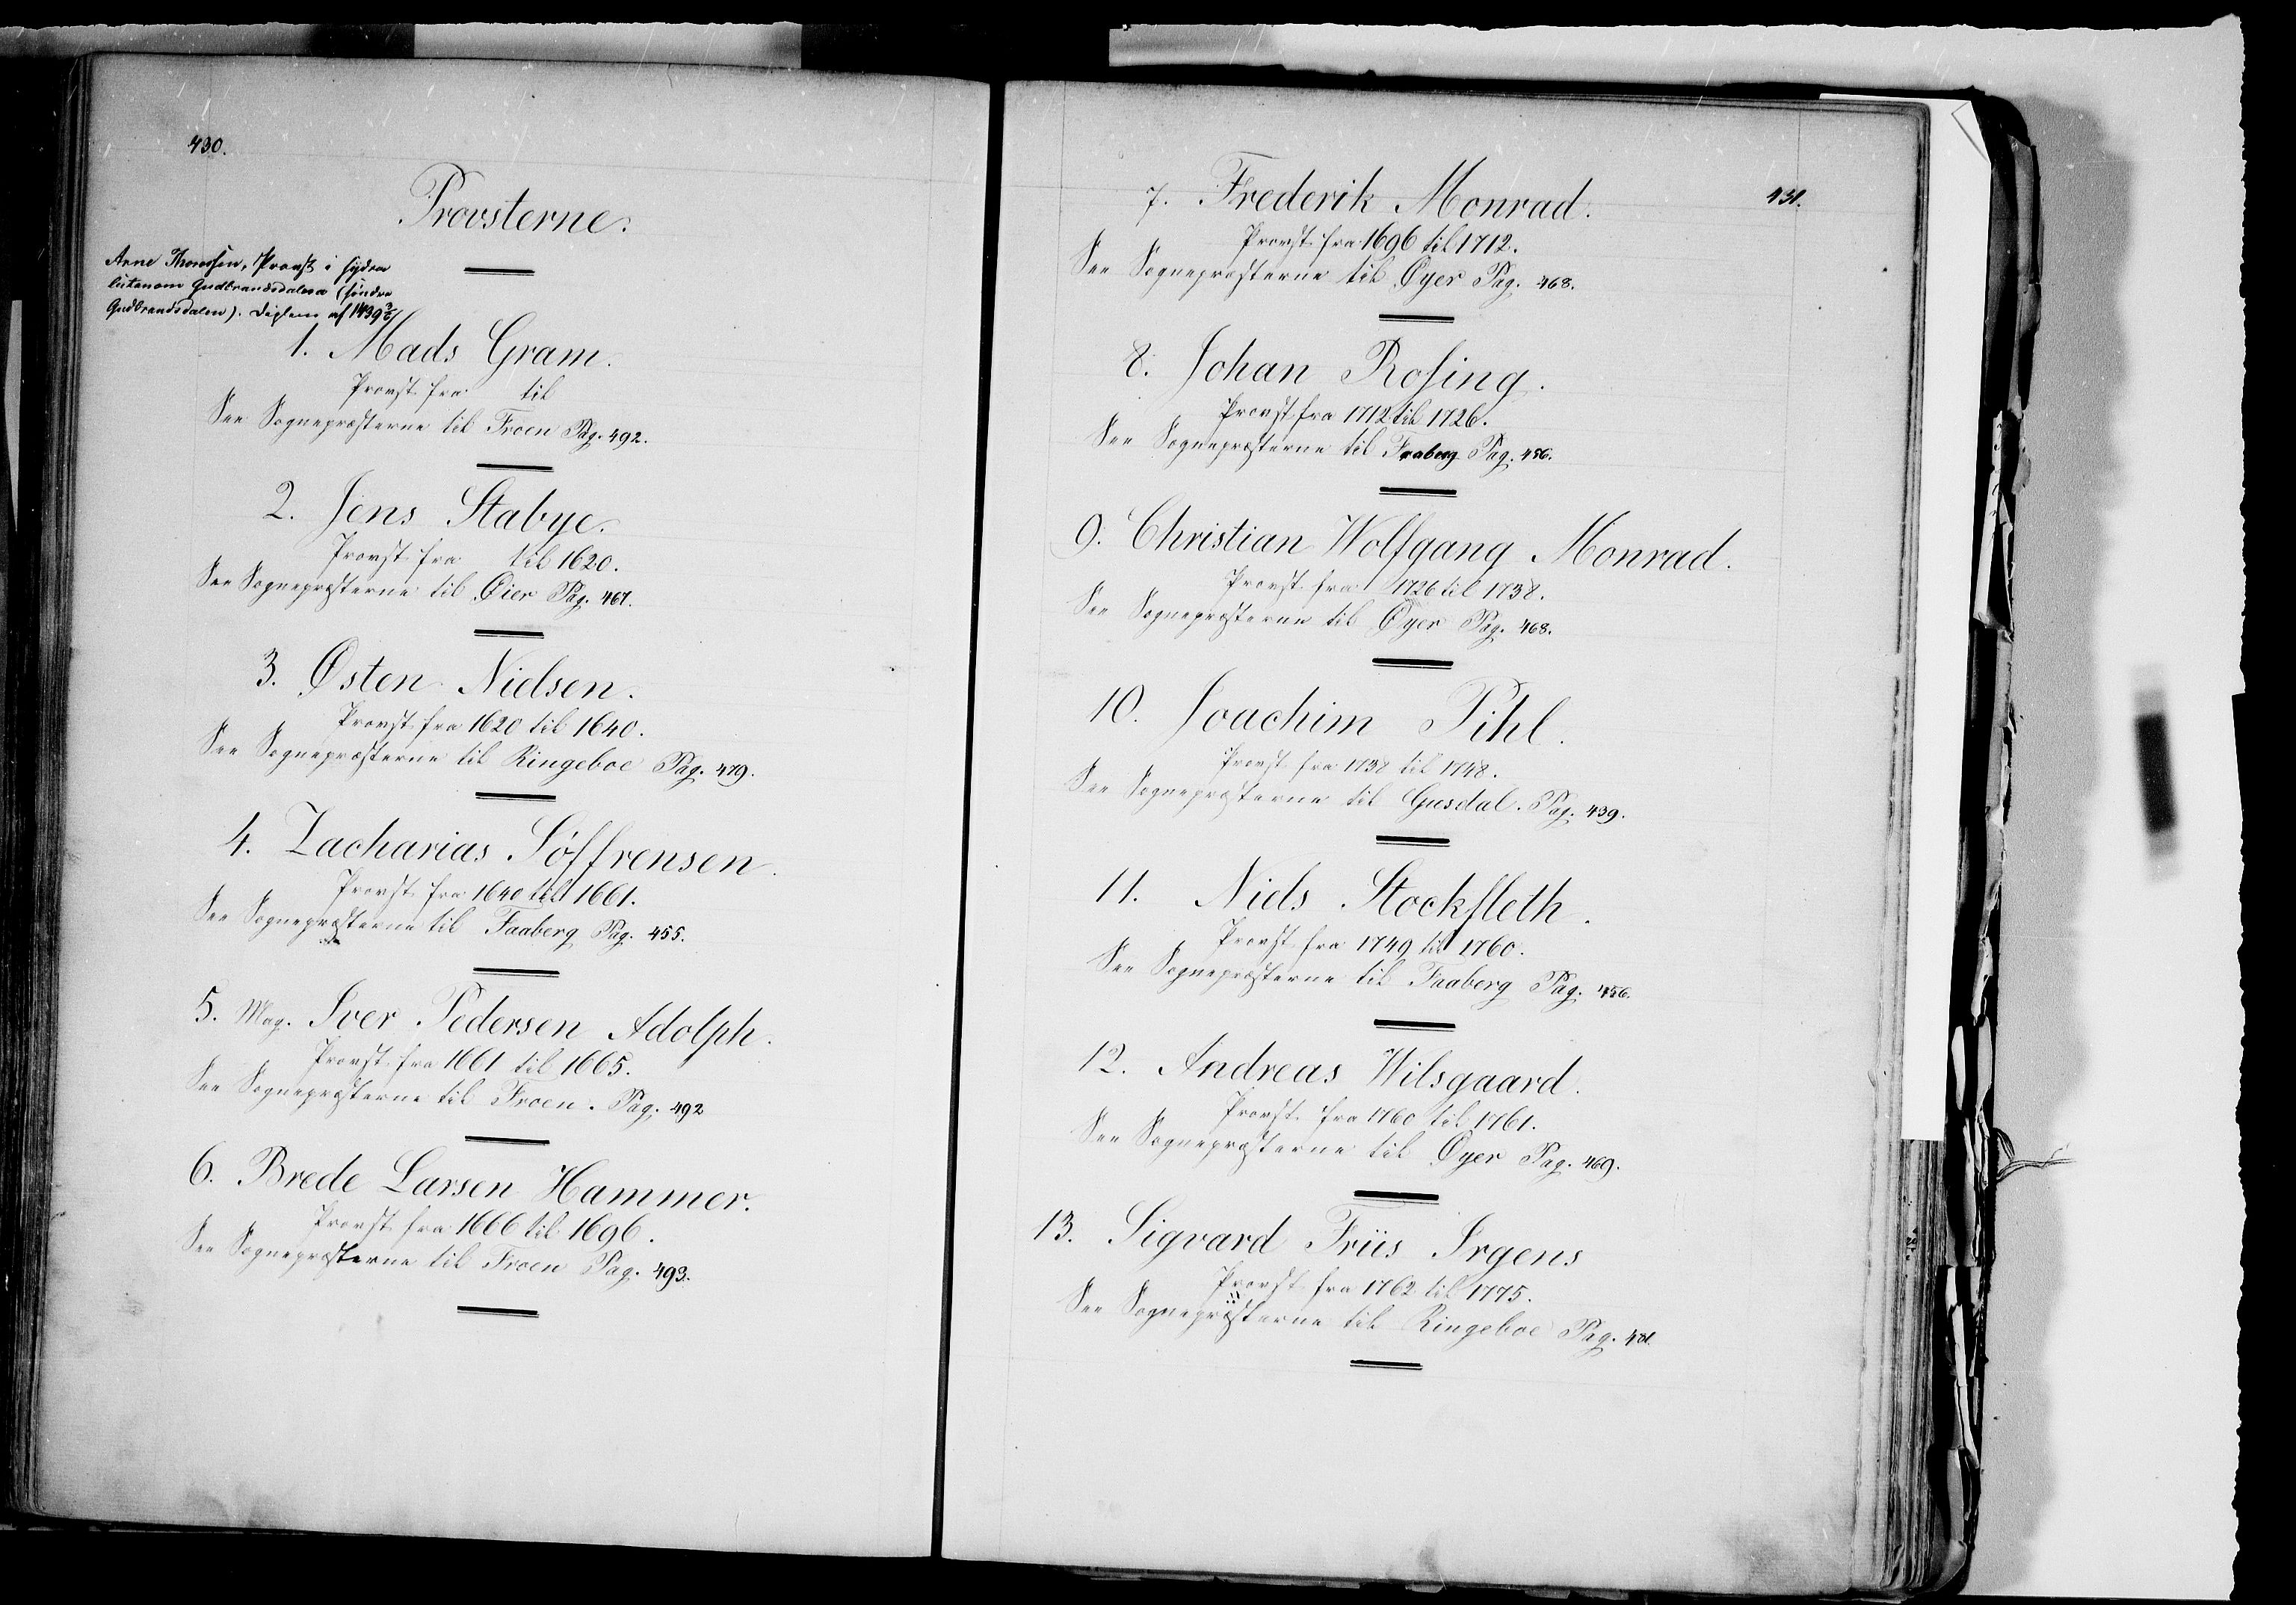 430.
Provsterne.
Arne Thomessen, Provst i sydra
lutanom Gudbrandsdalom (søndre
Gudbrandsdalen). Diplom af 1439
1. Mads Gram.
Provst fra til
See Sognepræsterne til Froen Pag. 492.
2. Jens Stabye.
Provst fra til 1620.
See Sognepræsterne til Øier Pag. 467.
3. Østen Nielsen.
Provst fra 1620 til 1640.
See Sognepræsterne til Ringeboe Pag. 479.
4. Zacharias Søffrensen.
Provst fra 1640 til 1661.
See Sognepræsterne til Faaberg Pag. 455.
5. Mag. Iver Pedersen Adolph.
Provst fra 1661 til 1665.
See Sognepræsterne til Froen. Pag. 492
6. Brede Larsen Hammer.
Provst fra 1666 til 1696.
See Sognepræsterne til Froen Pag. 493.
431.
7. Frederik Monrad.
Provst fra 1696 til 1712.
See Sognepræsterne til Øyer Pag. 468.
8. Johan Rosing.
Provst fra 1712 til 1726.
See Sognepræsterne til Faaberg Pag. 456.
9. Christian Wolfgang Monrad.
Provst fra 1726 til 1738.
See Sognepræsterne til Øyer Pag. 468.
10. Joachim Pihl.
Provst fra 1738 til 1748.
See Sognepræsterne til Gusdal. Pag. 439.
11. Niels Stockfleth.
Provst fra 1749 til 1760.
See Sognepræsterne til Faaberg Pag. 456.
12. Andreas Wilsgaard.
Provst fra 1760 til 1761.
See Sognepræsterne til Øyer Pag. 469.
13. Sigvard Friis Irgens
Provst fra 1762 til 1775.
See Sognepræsterne til Ringeboe Pag. 481.